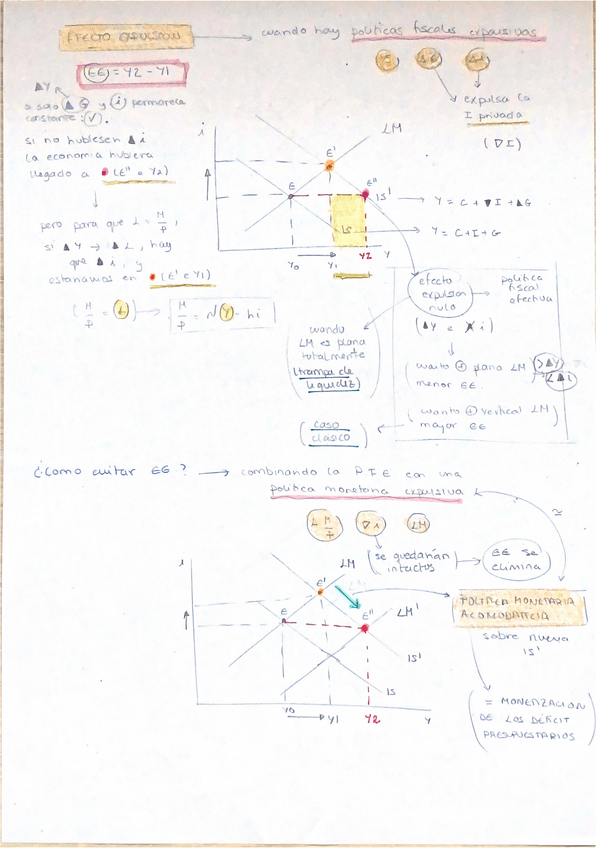 EFECTO EXPULSION → cuando hay políticas fiscales expansivas
EE = Y2 - Y1
▲Y
si solo ▲ G y i permanece
constante: (√).
si no hubiesen ▲ i
la economía hubiera
llegado a • (E'' e Y2)
pero para que L = M/P,
si ▲Y → ▲L, hay
que ▲ i, y
estaríamos en • (E' e Y1)
(M/P = L) → M/P = NY - hi
expulsa la
I privada
(▽I)
i
LM
E'
E
E''
IS'
IS
Y0
Y1
Y2
Y
Y = C + ▼I + ▲G
Y = C + I + G
efecto
expulsion
nulo
política
fiscal
efectiva
(▲Y e i)
cuando
LM es plana
totalmente
(trampa de
liquidez)
cuanto ⊕ plana LM
menor EE.
>▲Y
<▲i
cuanto ⊕ vertical LM
mayor EE
(caso
clásico)
¿Como evitar EE? → combinando la P.F.E con una
política monetaria expansiva
▽i
LM
se quedarían
intactos
EE se
elimina
i
LM
E'
E
E''
LM'
IS'
IS
Y0
Y1
Y2
Y
POLITICA MONETARIA
ACOMODATICIA
sobre nueva
IS'
= MONETIZACION
DE LOS DÉFICIT
PRESUPUESTARIOS